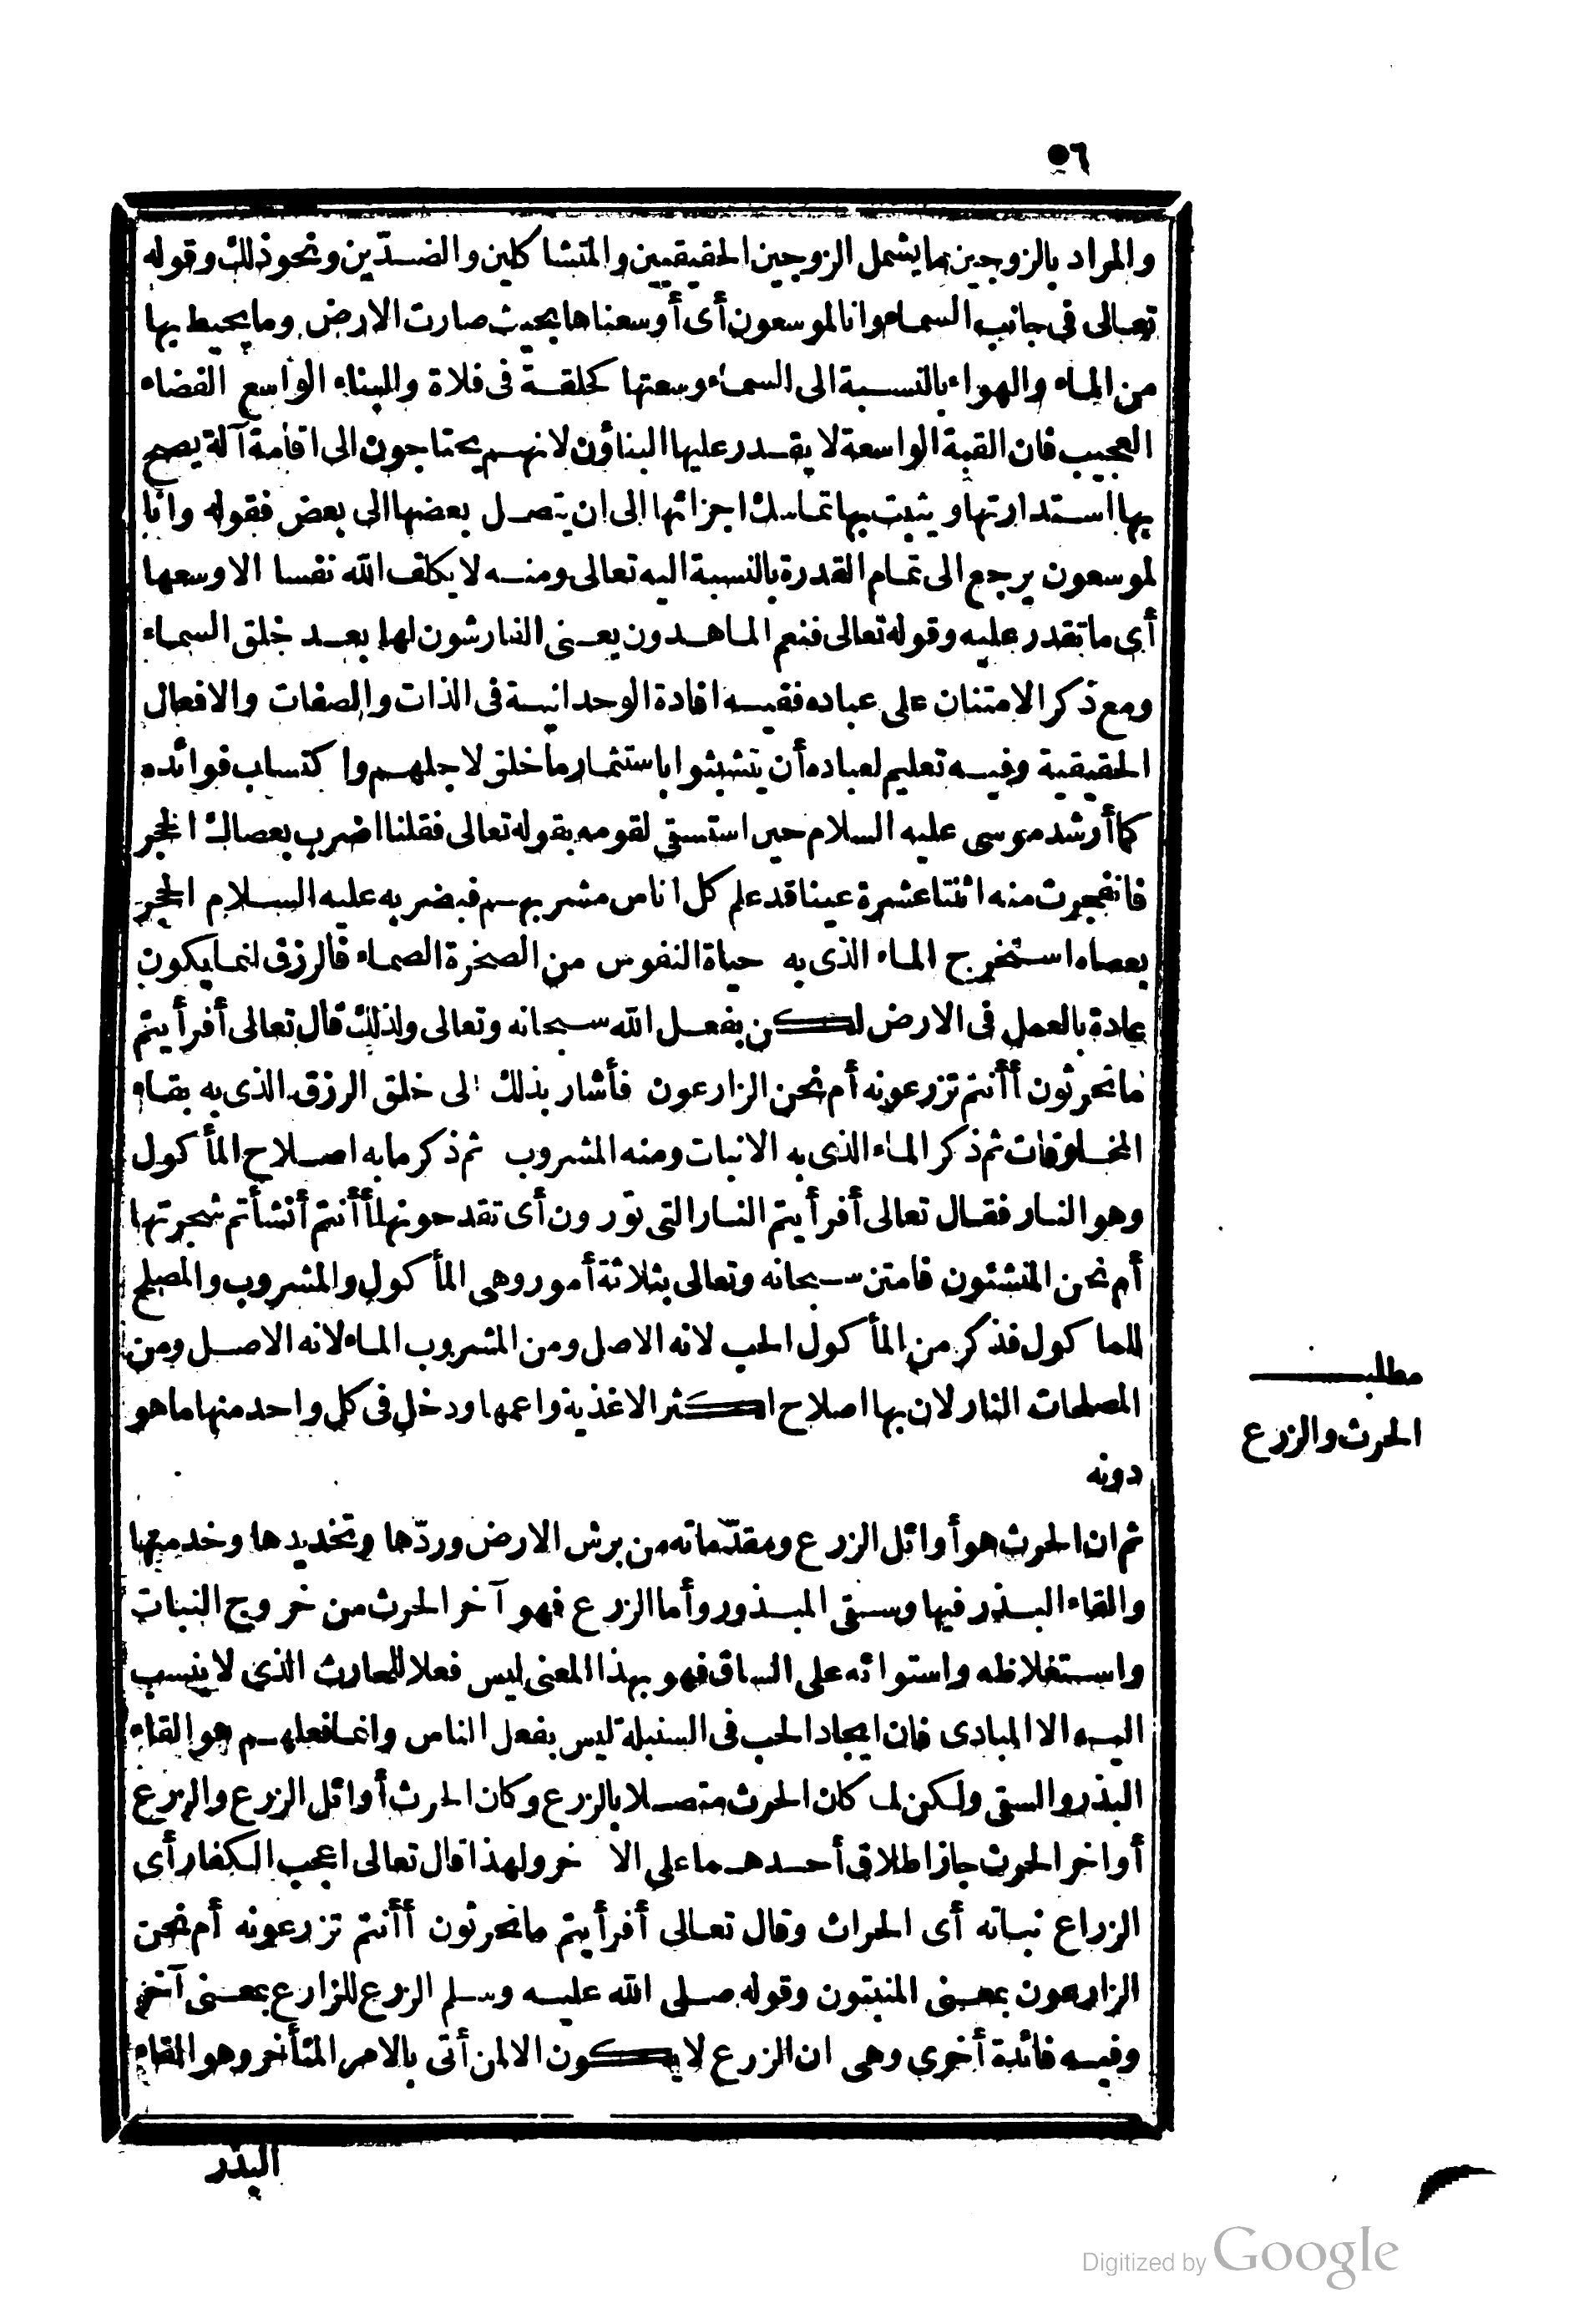 ٥٦
والمراد بالزوجين ما يشمل الزوجين الحقيقيين والمتشاكلين والضدّين ونحو ذلك وقوله
تعالى فى جانب السماء وانا لموسعون أى أوسعناها بحيث صارت الارض وما يحيط بها
من الماء والهواء بالنسبة الى السماء وسعتها كحلقة فى فلاة والبناء الواسع الفضاء
العجيب فان القبة الواسعة لا يقدر عليها البناؤن لانهم يحتاجون الى اقامة آلة يصح
بها استدارتها ويثبت بها تماسك اجزائها الى ان يتصل بعضها الى بعض فقوله وانا
لموسعون يرجع الى تمام القدرة بالنسبة اليه تعالى ومنه لا يكلف الله نفسا الا وسعها
أى ما تقدر عليه وقوله تعالى فنعم الماهدون يعنى الفارشون لها بعد خلق السماء
ومع ذكر الامتنان على عباده ففيه افادة الوحدانية فى الذات والصفات والافعال
الحقيقية وفيه تعليم لعباده أن يتشبثوا باستثمار ما خلق لاجلهم واكتساب فوائده
كما أرشد موسى عليه السلام حين استسقى لقومه بقوله تعالى فقلنا اضرب بعصاك الحجر
فانفجرت منه اثنتا عشرة عينا قد علم كل اناس مشربهم فبضربه عليه السلام الحجر
بعصاه استخرج الماء الذى به حياة النفوس من الصخرة الصماء فالرزق انما يكون
عادة بالعمل فى الارض لكن بفعل الله سبحانه وتعالى ولذلك قال تعالى أفرأيتم
ما تحرثون أأنتم تزرعونه أم نحن الزارعون فأشار بذلك الى خلق الرزق الذى به بقاء
المخلوقات ثم ذكر الماء الذى به الانبات ومنه المشروب ثم ذكر ما به اصلاح المأكول
وهو النار فقال تعالى أفرأيتم النار التى تورون أى تقدحونها أأنتم أنشأتم شجرتها
أم نحن المنشئون فامتن سبحانه وتعالى بثلاثة أمور وهى المأكول والمشروب والمصلح
للماكول فذكر من المأكول الحب لانه الاصل ومن المشروب الماء لانه الاصل ومن
المصلحات النار لان بها اصلاح اكثر الاغذية واعمها ودخل فى كل واحد منها ما هو
دونه
مطلب
الحرث والزرع
ثم ان الحرث هو أوائل الزرع ومقدّماته من برش الارض وردّها وتخديدها وخدمتها
والقاء البذر فيها وسقى المبذور وأما الزرع فهو آخر الحرث من خروج النبات
واستغلاظه واستوائه على الساق فهو بهذا المعنى ليس فعلا للحارث الذى لا ينسب
اليه الا المبادى فان ايجاد الحب فى السنبلة ليس بفعل الناس وانما فعلهم هو القاء
البذر والسقى ولكن لما كان الحرث متصلا بالزرع وكان الحرث أوائل الزرع والزرع
أواخر الحرث جاز اطلاق أحدهما على الآخر ولهذا قال تعالى اعجب الكفار أى
الزراع نباته أى الحراث وقال تعالى أفرأيتم ما تحرثون أأنتم تزرعونه أم نحن
الزارعون بمعنى المنبتون وقوله صلى الله عليه وسلم الزرع للزارع بمعنى آخر
وفيه فائدة أخرى وهى ان الزرع لا يكون الا لمن أتى بالامر المتأخر وهو القاء
البذر
Digitized by Google